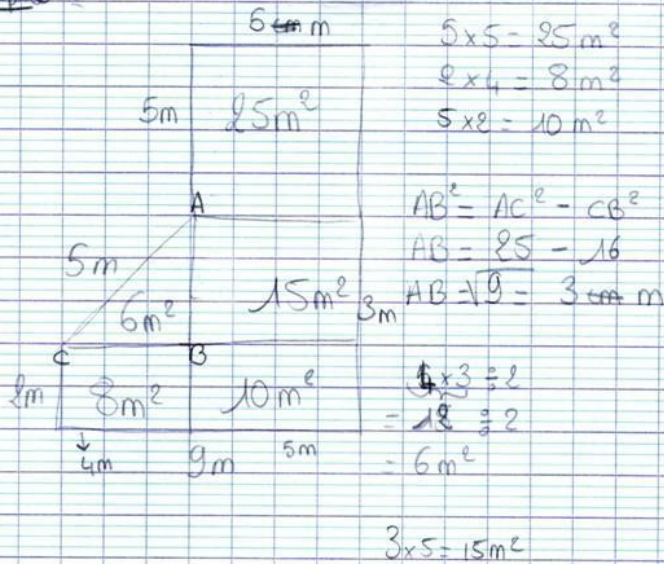 5 cm m
5m
25m²
A
5m
6m²
15m²
3m
C
B
2m
8m²
10m²
4m
9m
5m
5 × 5 = 25 m²
2 × 4 = 8 m²
5 × 2 = 10 m²
AB² = AC² - CB²
AB = 25 - 16
AB = √9 = 3 cm m
4 × 3 ÷ 2
= 12 ÷ 2
= 6 m²
3 × 5 = 15 m²